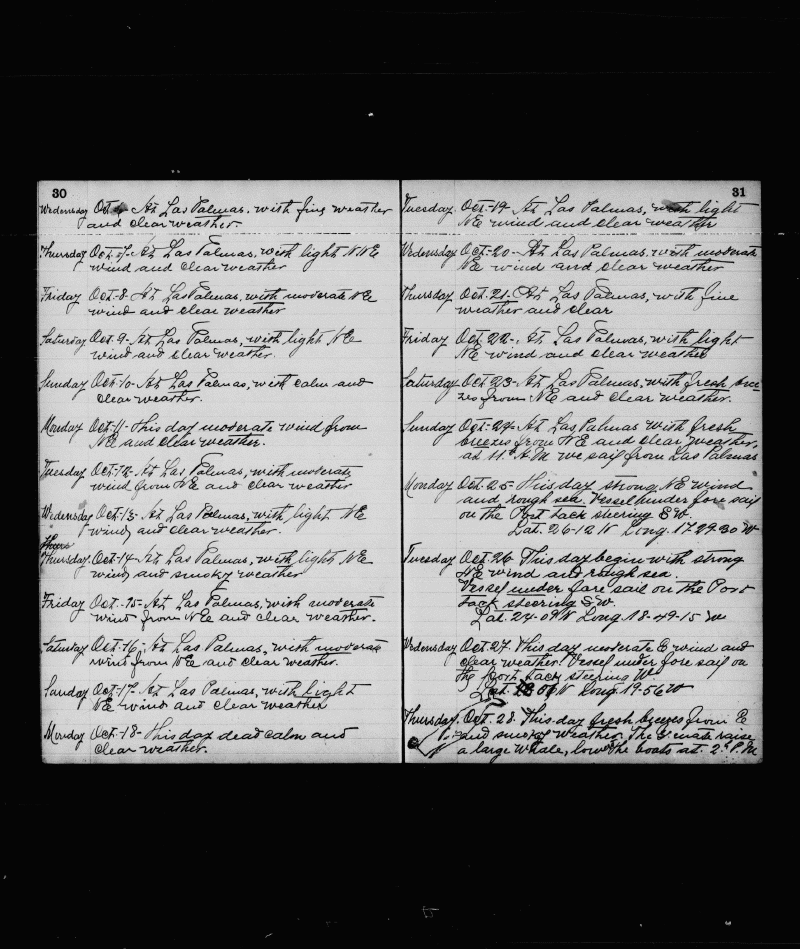 30
Wednesday Oct 6 At Las Palmas. with fine weather
and clear weather.
Thursday Oct. 7- At Las Palmas, with light N NE
wind and clear weather
Friday Oct- 8- At Las Palmas, with moderate NE
wind and clear weather
Saturday Oct 9- At Las Palmas, with light NE
wind and clear weather.
Sunday Oct- 10- At Las Palmas, with calm and
clear weather.
Monday Oct- 11- This day moderate wind from
NE and clear weather.
Tuesday Oct- 12- At Las Palmas, with moderate
wind from NE and clear weather
Wednesday Oct- 13- At Las Palmas, with light NE
wind and clear weather.
Thurs
Thursday. Oct- 14- At Las Palmas, with light NE
wind and smoky weather
Friday Oct. - 15- At Las Palmas, with moderate
wind from NE and clear weather.
Saturday Oct- 16- At Las Palmas, with moderate
wind from NE and clear weather.
Sunday Oct- 17- At Las Palmas, with light
NE wind and clear weather
Monday Oct- 18- This day dead calm and
clear weather.
31
Tuesday Oct- 19- At Las Palmas, with light
NE wind and clear weather
Wednesday Oct- 20- At Las Palmas, with moderate
NE wind and clear weather
Thursday Oct. 21- At Las Palmas, with fine
weather and clear
Friday Oct 22-. At Las Palmas, with light
NE wind and clear weather
Saturday Oct 23- At Las Palmas, with fresh bre-
zes from NE and clear weather.
Sunday Oct- 24- At Las Palmas with fresh
breezes from NE and clear weather,
at 11h A M we sail from Las Palmas
Monday Oct- 25- This day strong NE wind
and rough sea. Vessel under fore sail
on the Port tack steering SW.
Lat. 26-12 N Long. 17 29 30 W
Tuesday Oct- 26 This day begin with strong
NE wind and rough sea.
Vessel under fore sail on the Port
tack steering SW.
Lat. 24-09 N Long 18-49-15 W
Wednesday Oct 27. This day moderate E wind and
clear weather. Vessel under fore sail on
the port tack steering
Lat. N Long 19-56 W
Thursday. Oct. 28. This day fresh breezes from E
and smoky weather. The mate raise
a large Whale, low the boats at. 2h P. M